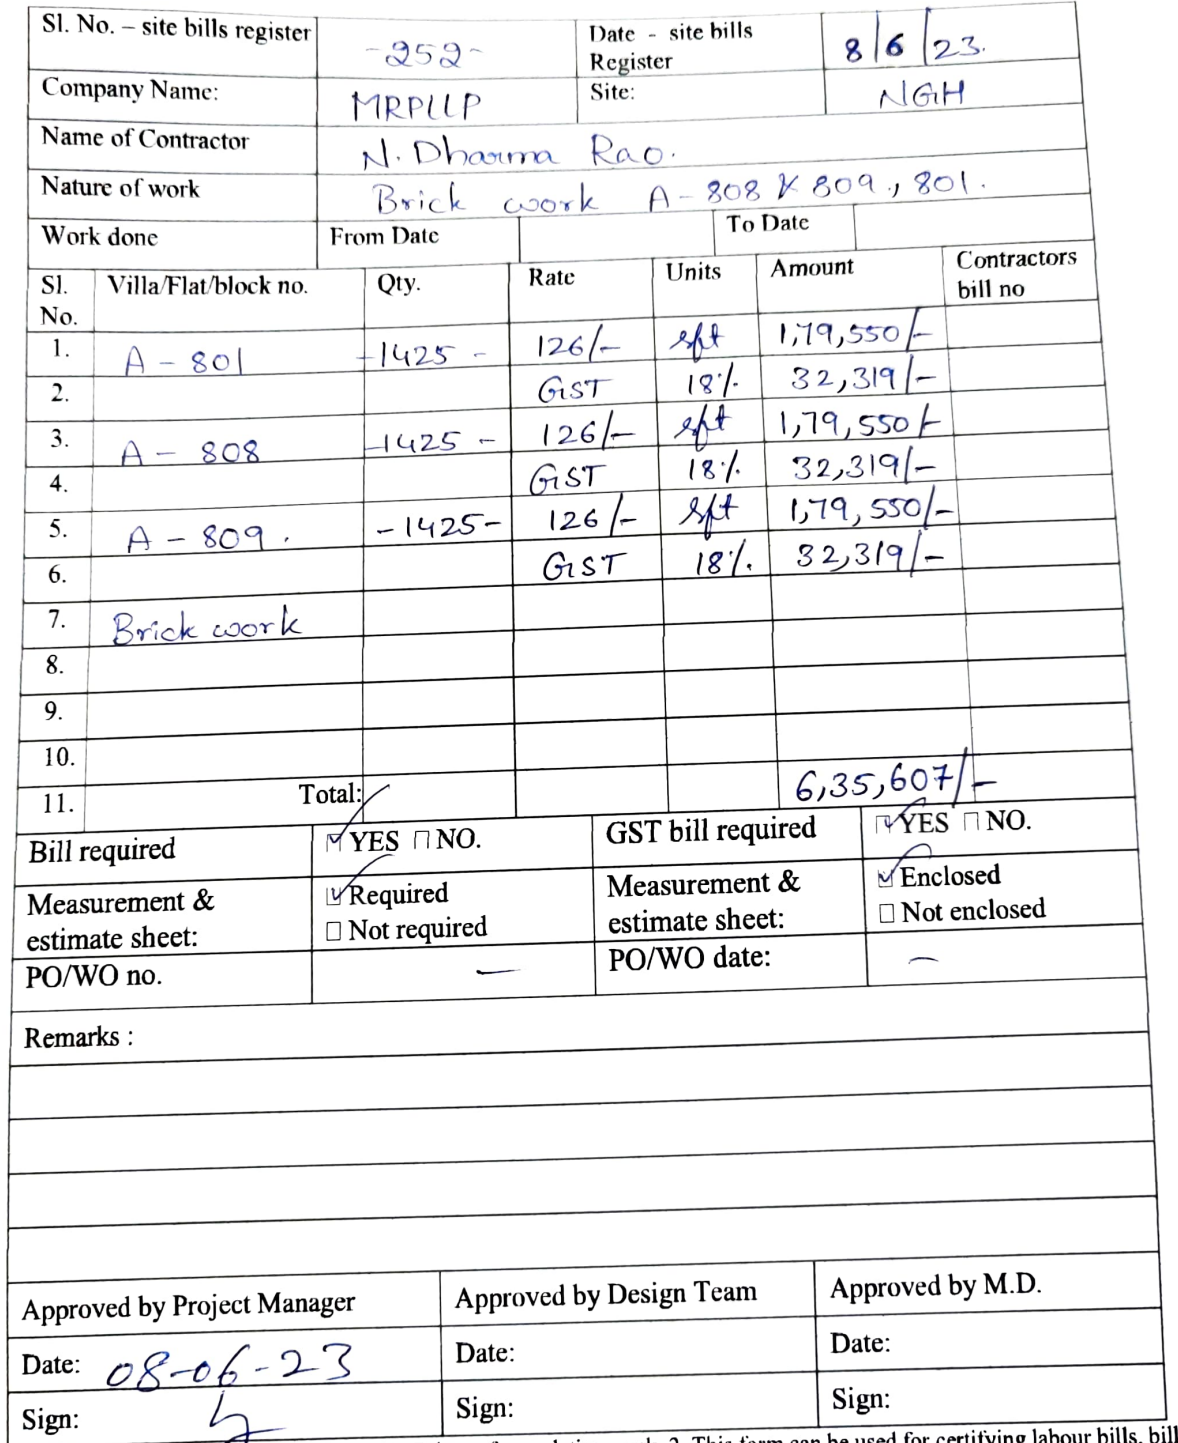 Sl. No. – site bills register -252- Date - site bills Register 8/6/23.
Company Name: MRPLLP Site: NGH
Name of Contractor N. Dharma Rao.
Nature of work Brick work A-808 & 809., 801.
Work done From Date To Date
Sl. No. Villa/Flat/block no. Qty. Rate Units Amount Contractors bill no
1. A - 801 -1425- 126/- sft 1,79,550/-
2. GST 18%. 32,319/-
3. A - 808 -1425- 126/- sft 1,79,550/-
4. GST 18%. 32,319/-
5. A - 809. -1425- 126/- sft 1,79,550/-
6. GST 18%. 32,319/-
7. Brick work
8.
9.
10.
11. Total: 6,35,607/-
Bill required ☑ YES ☐ NO. GST bill required ☑ YES ☐ NO.
Measurement & estimate sheet: ☑ Required ☐ Not required Measurement & estimate sheet: ☑ Enclosed ☐ Not enclosed
PO/WO no. — PO/WO date: —
Remarks :
Approved by Project Manager Approved by Design Team Approved by M.D.
Date: 08-06-23 Date: Date:
Sign: Sign: Sign:
2. This form can be used for certifying labour bills, bill